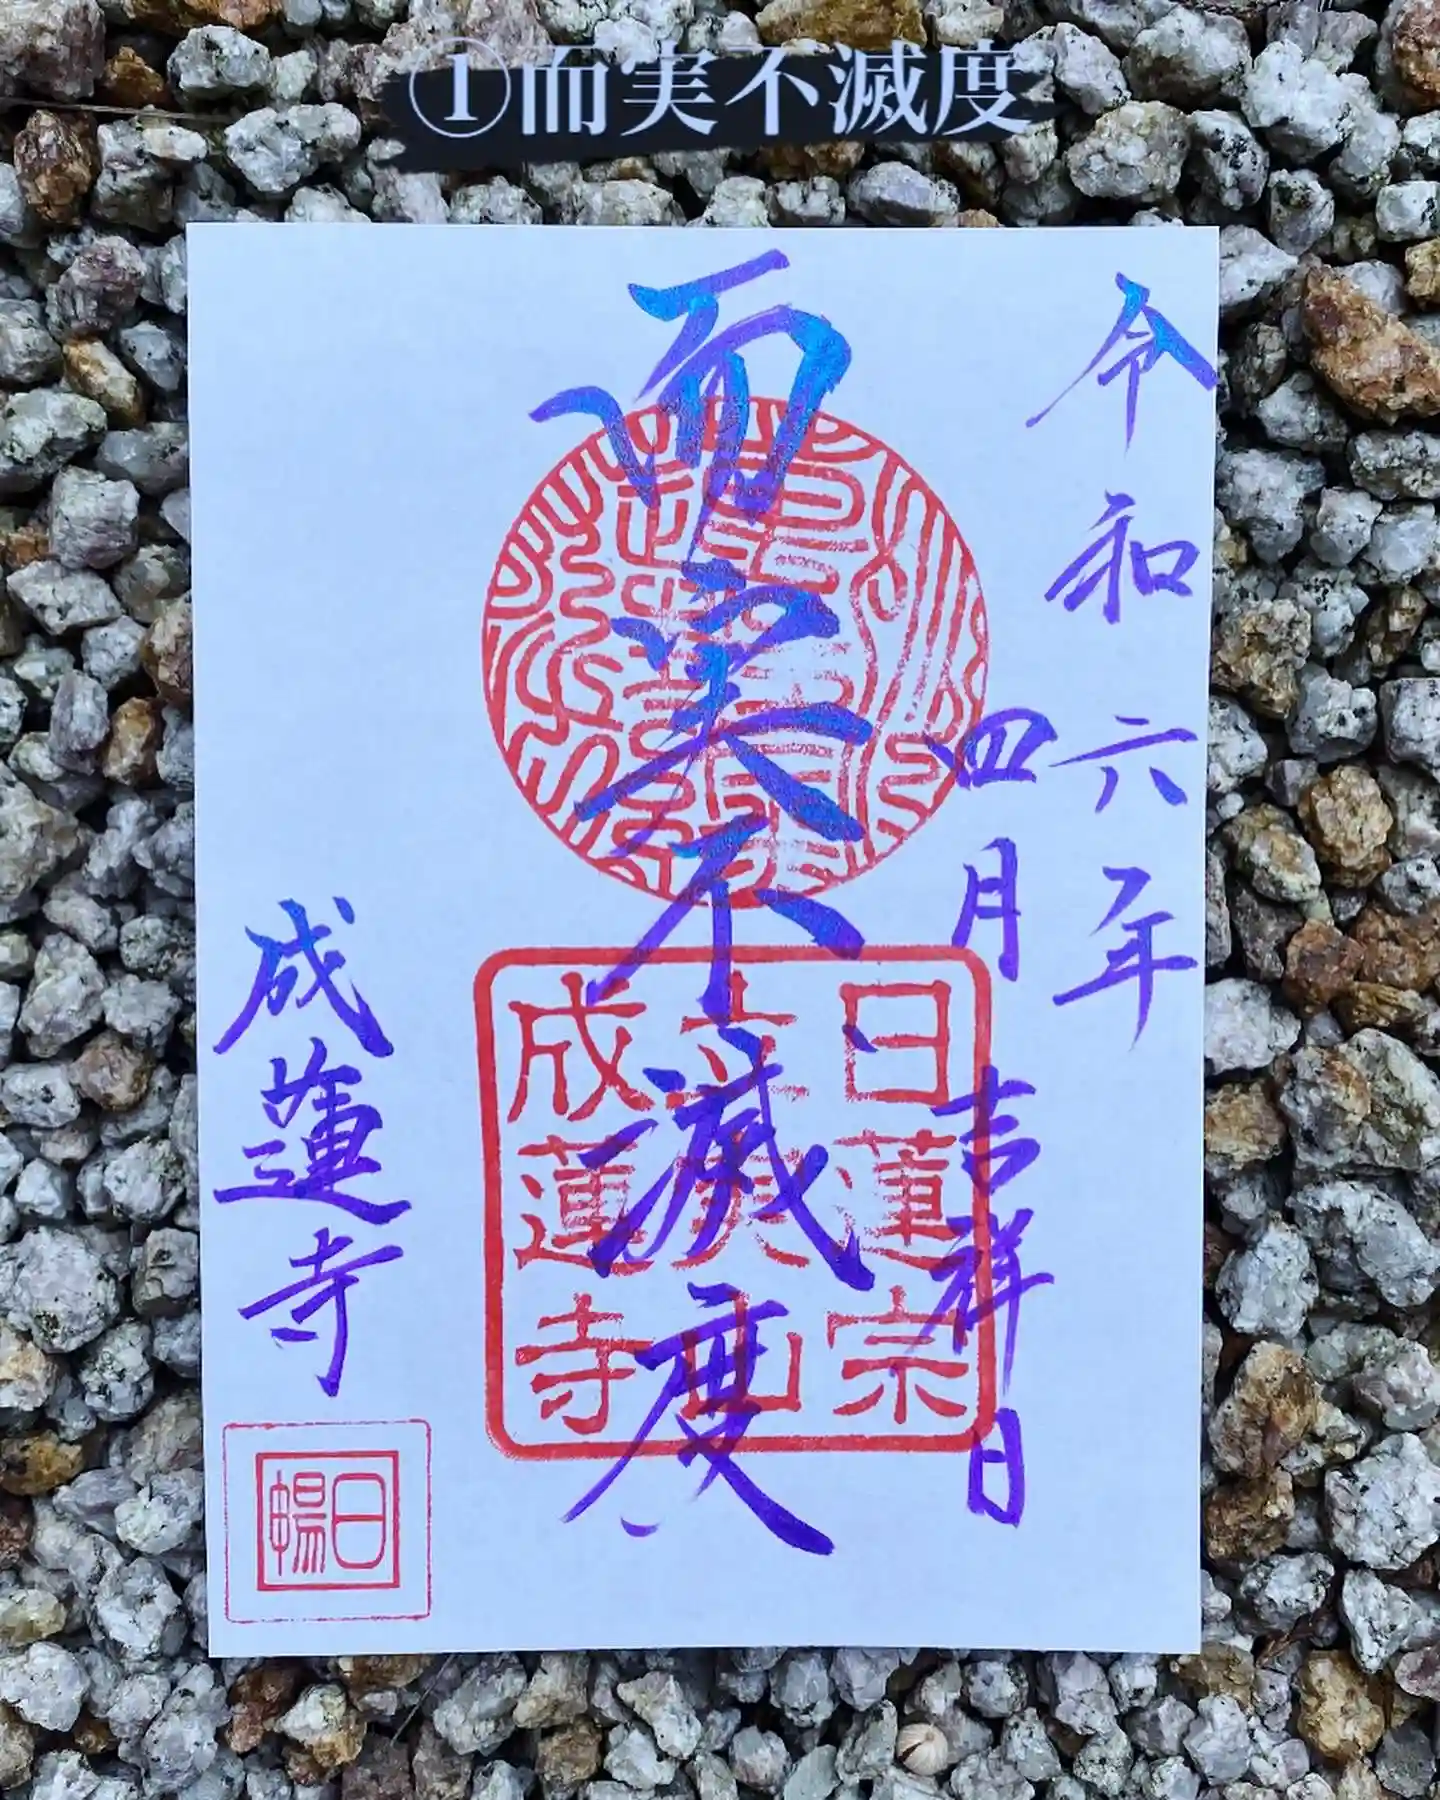 ①而実不滅度
令和六年
四月吉祥日
而実不滅度
成蓮寺
日蓮宗
成蓮寺
日暢